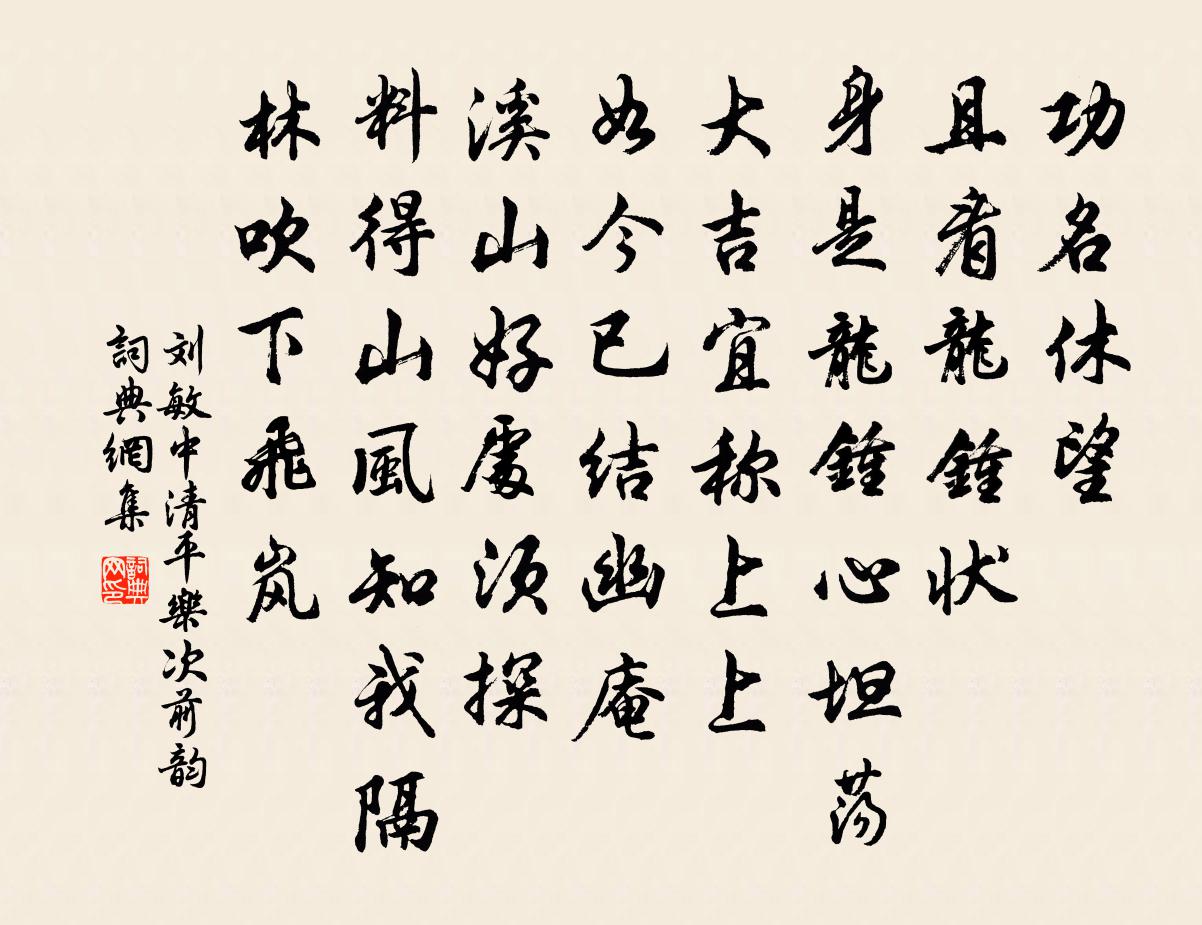 功名休望
且看龍鍾状
身是龍鍾心坦荡
大吉宜称上上
如今已结幽庵
溪山好處须探
料得山風知我
隔林吹下飛岚
刘敏中清平樂次前韵
詞典網集
詞典网印